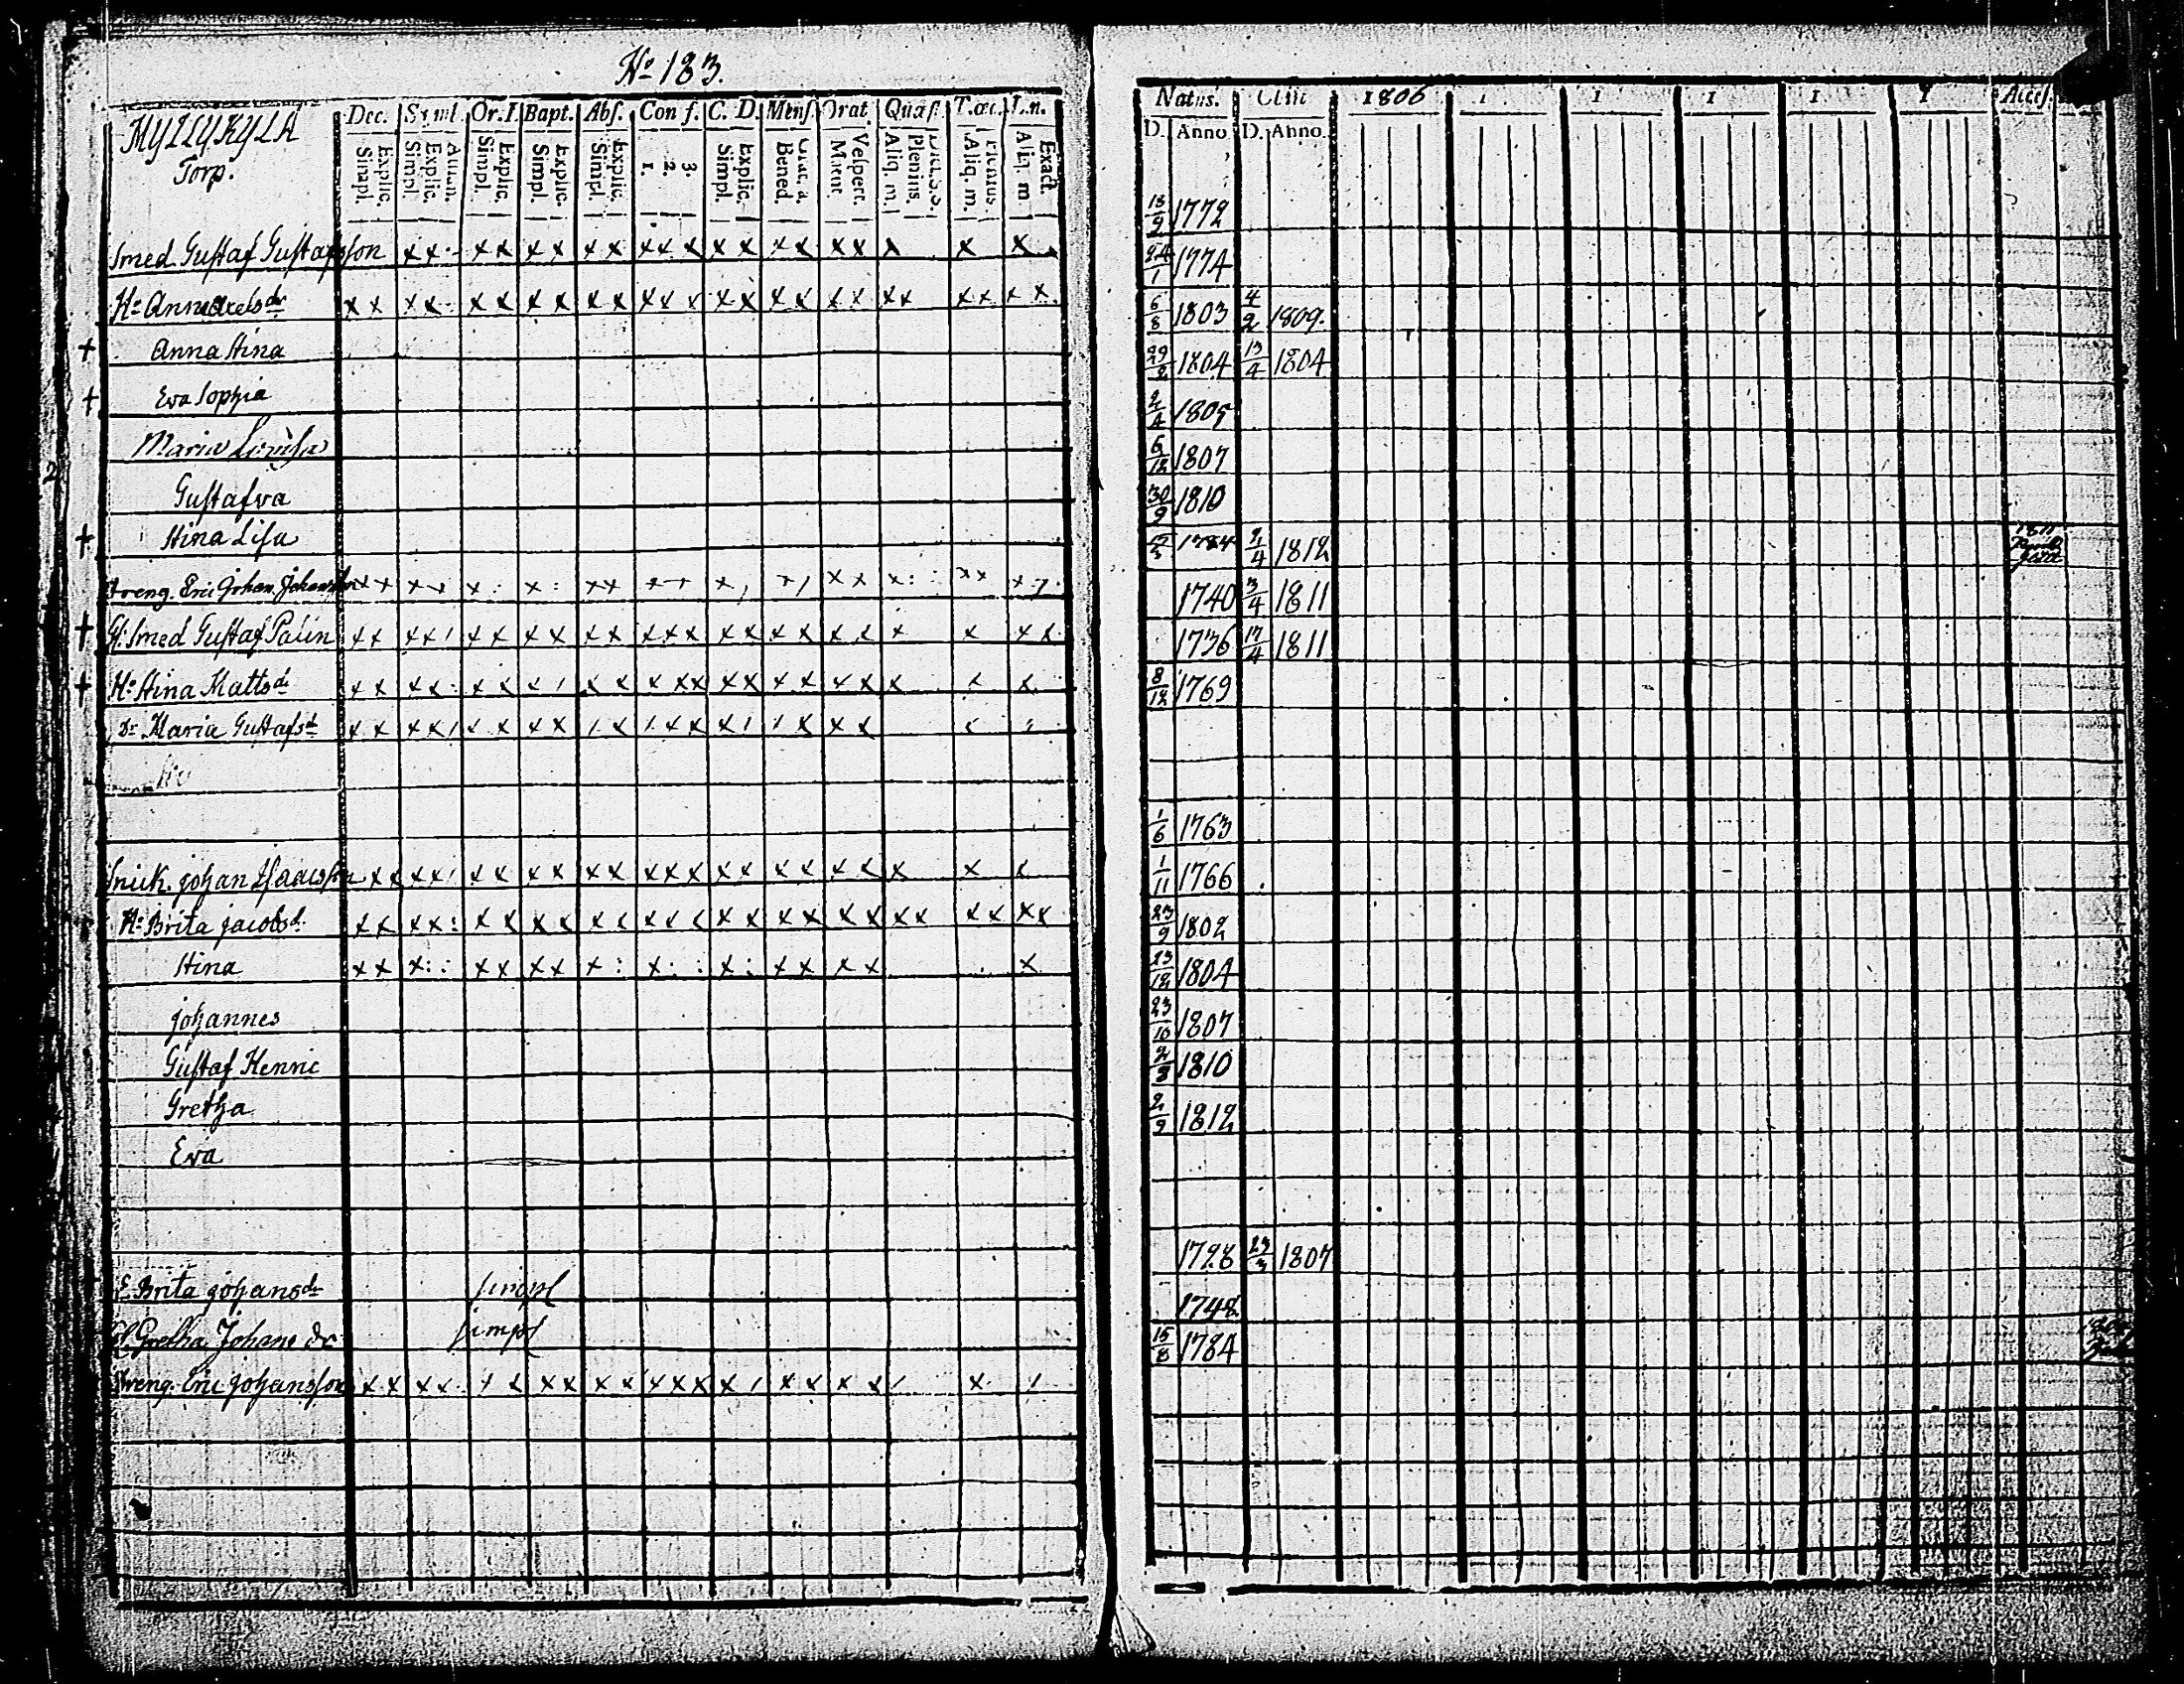 No 183.
MYLLYKYLÄ
Torp.
Dec. Syml. Or. D. Bapt. Abs. Con f. C. D. Mens. Orat. Quæst. T. œc. L. n.
Explic. Simpl. Explic. Simpl. Explic. Simpl. Explic. Simpl. Explic. Simpl. 3. 2. 1. Explic. Simpl. Bened. Vespert. Matut. Plenius. Aliq. m. Plenius. Aliq. m. Exact. Aliq. m
Natus. 1806 1 1 1 1 1 Access.
D. Anno D. Anno
Smed Gustaf Gustafsson 13/9 1772
Hu Anna Axels dr 24/1 1774
† Anna Stina 6/8 1803 4/2 1809.
† Eva Sophia 29/2 1804 13/4 1804
Maria Lovisa 2/4 1805
Gustafva 6/12 1807
† Stina Lisa 30/9 1810 2/4 1812
Dreng. Eric Johan 1784 1811
† Gl. Smed Gustaf Palin 1740 3/4 1811
† Hu Stina Matts dr 1736 17/4 1811
Dr. Maria Gustafs dr 8/12 1769
Snick. Johan Isaacsson 1/6 1763
Hu Brita Jacobs dr 1/11 1766
Stina 23/9 1802
Johannes 23/12 1804
Gustaf Henric 23/10 1807
Gretha 2/3 1810
Eva 2/9 1812
E. Brita Johans dr simpl 1728 23/3 1807
Gretha Johans dr simpl 1748
Dreng. Eric Johansson 15/8 1784